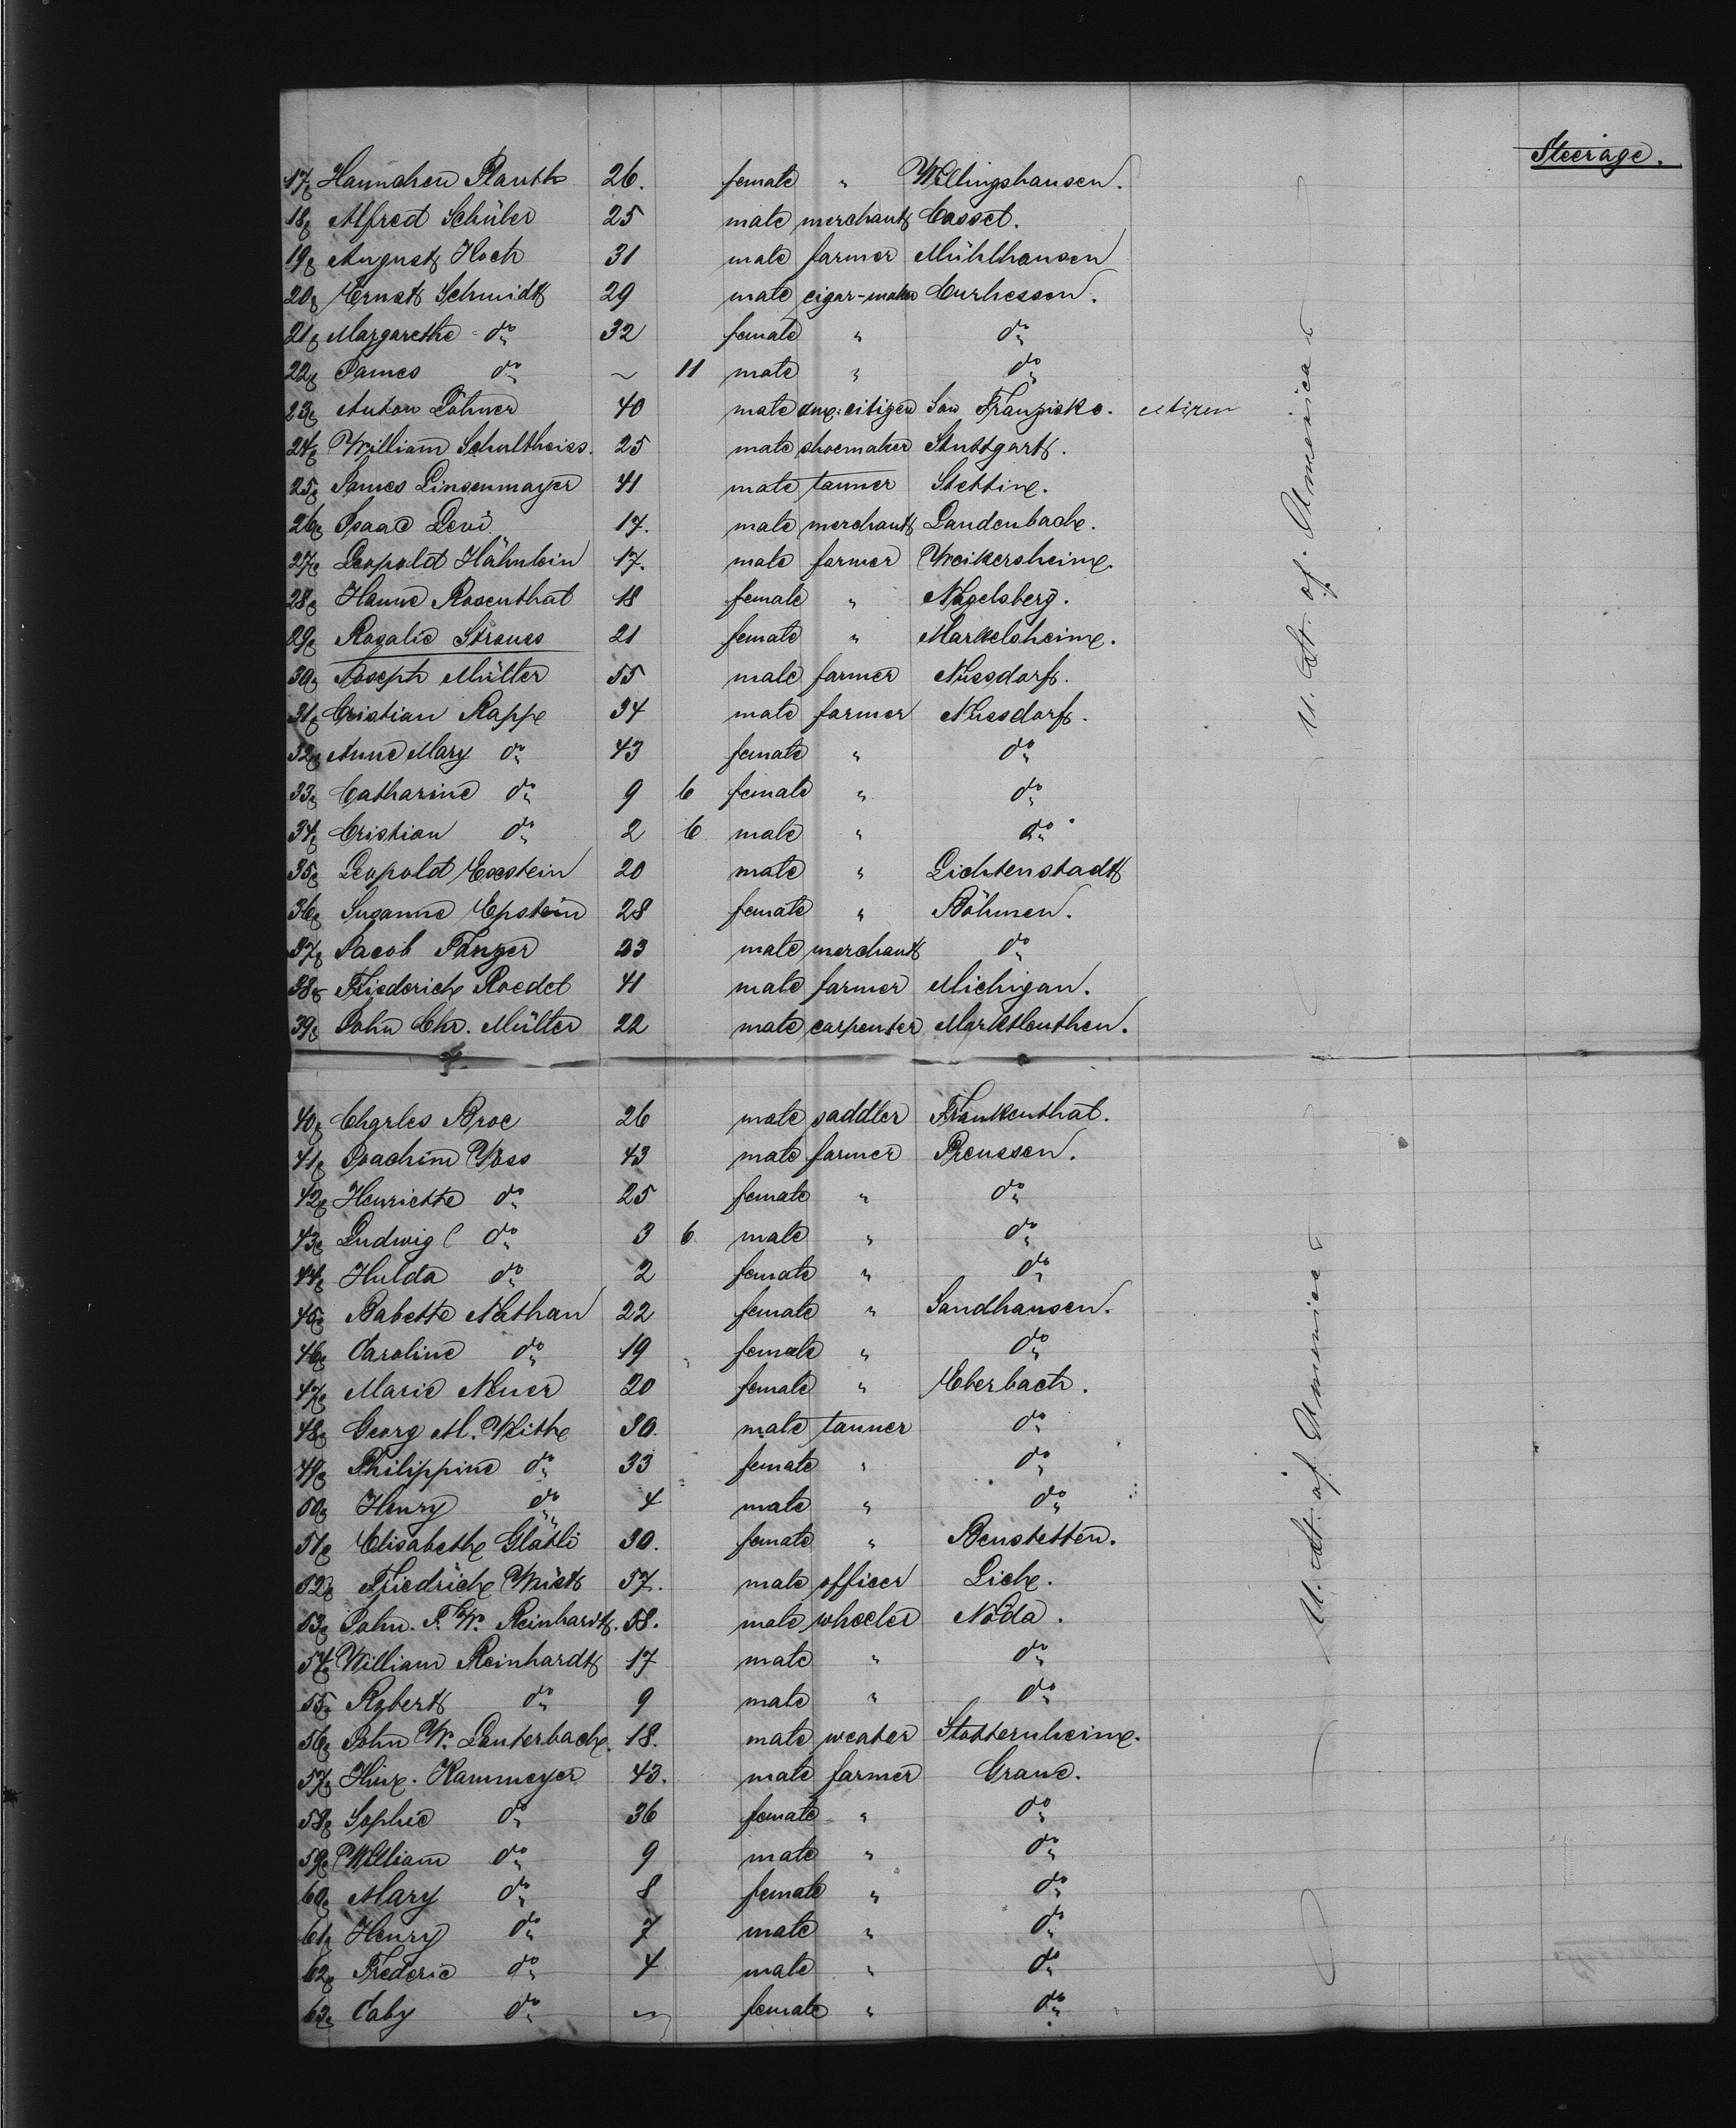 Steerage.
17, Hannchen Plauth 26. female " Willingshausen.
18, Alfred Schüler 25 male merchant Cassel.
19, August Koch 31 male farmer Mühlhausen
20, Ernst Schmidt 29 male cigar-maker Curhessen.
21, Margarethe do 32 female " do
22, James do ~ 11 male " do
23, Anton Löhner 40 male am. citizen San Franzisko. citizen
24, William Schultheiss. 25 male shoemaker Stuttgart.
25, James Linsenmayer 41 male tanner Stettin.
26, Isaac Levi 17. male merchant Laudenbach.
27, Leopold Hähnlein 17. male farmer Weikersheim.
28, Hanne Rosenthal 18 female " Nagelsberg.
29, Rosalie Strauss 21 female " Markelsheim.
30, Joseph Müller 55 male farmer Nussdorf.
31, Cristian Rapp 34 male farmer Nussdorf.
32, Anne Mary do 43 female " do
33, Catharine do 9 6 female " do
34, Cristian do 2 6 male " do
35, Leopold Eckstein 20 male " Lichtenstadt
36, Susanne Epstein 28 female " Böhmen.
37, Jacob Tanzer 23 male merchant do
38, Friederich Roedel 41 male farmer Michigan.
39, John Chr. Müller 22 male carpenter Marktleuthen.
U. St. of America
40, Charles Broe 26 male saddler Frankenthal.
41, Joachim Voss 43 male farmer Preussen.
42, Henriette do 25 female " do
43, Ludwig do 3 6 male " do
44, Hulda do 2 female " do
45, Babette Nathan 22 female " Sandhausen.
46, Caroline do 19 female " do
47, Marie Neuer 20 female " Eberbach.
48, Georg M. Withe 30. male tanner do
49, Philippine do 33 female " do
50, Henry do 4 male " do
51, Elisabeth Glätli 30. female " Benstetten.
52, Friedrich Wüst 57. male officer Lich.
53, John. F. W. Reinhardt. 58. male wheeler Nöda.
54, William Reinhardt 17 male " do
55, Robert do 9 male " do
56, John W. Lauterbach. 18. male weaker Stotternheim.
57, Hin. Kammeyer 43. male farmer Grane.
58, Sophie do 36 female " do
59, William do 9 male " do
60, Mary do 8 female " do
61, Henry do 7 male " do
62, Frederic do 4 male " do
63, Caby do ~ female " do
U. St. of America